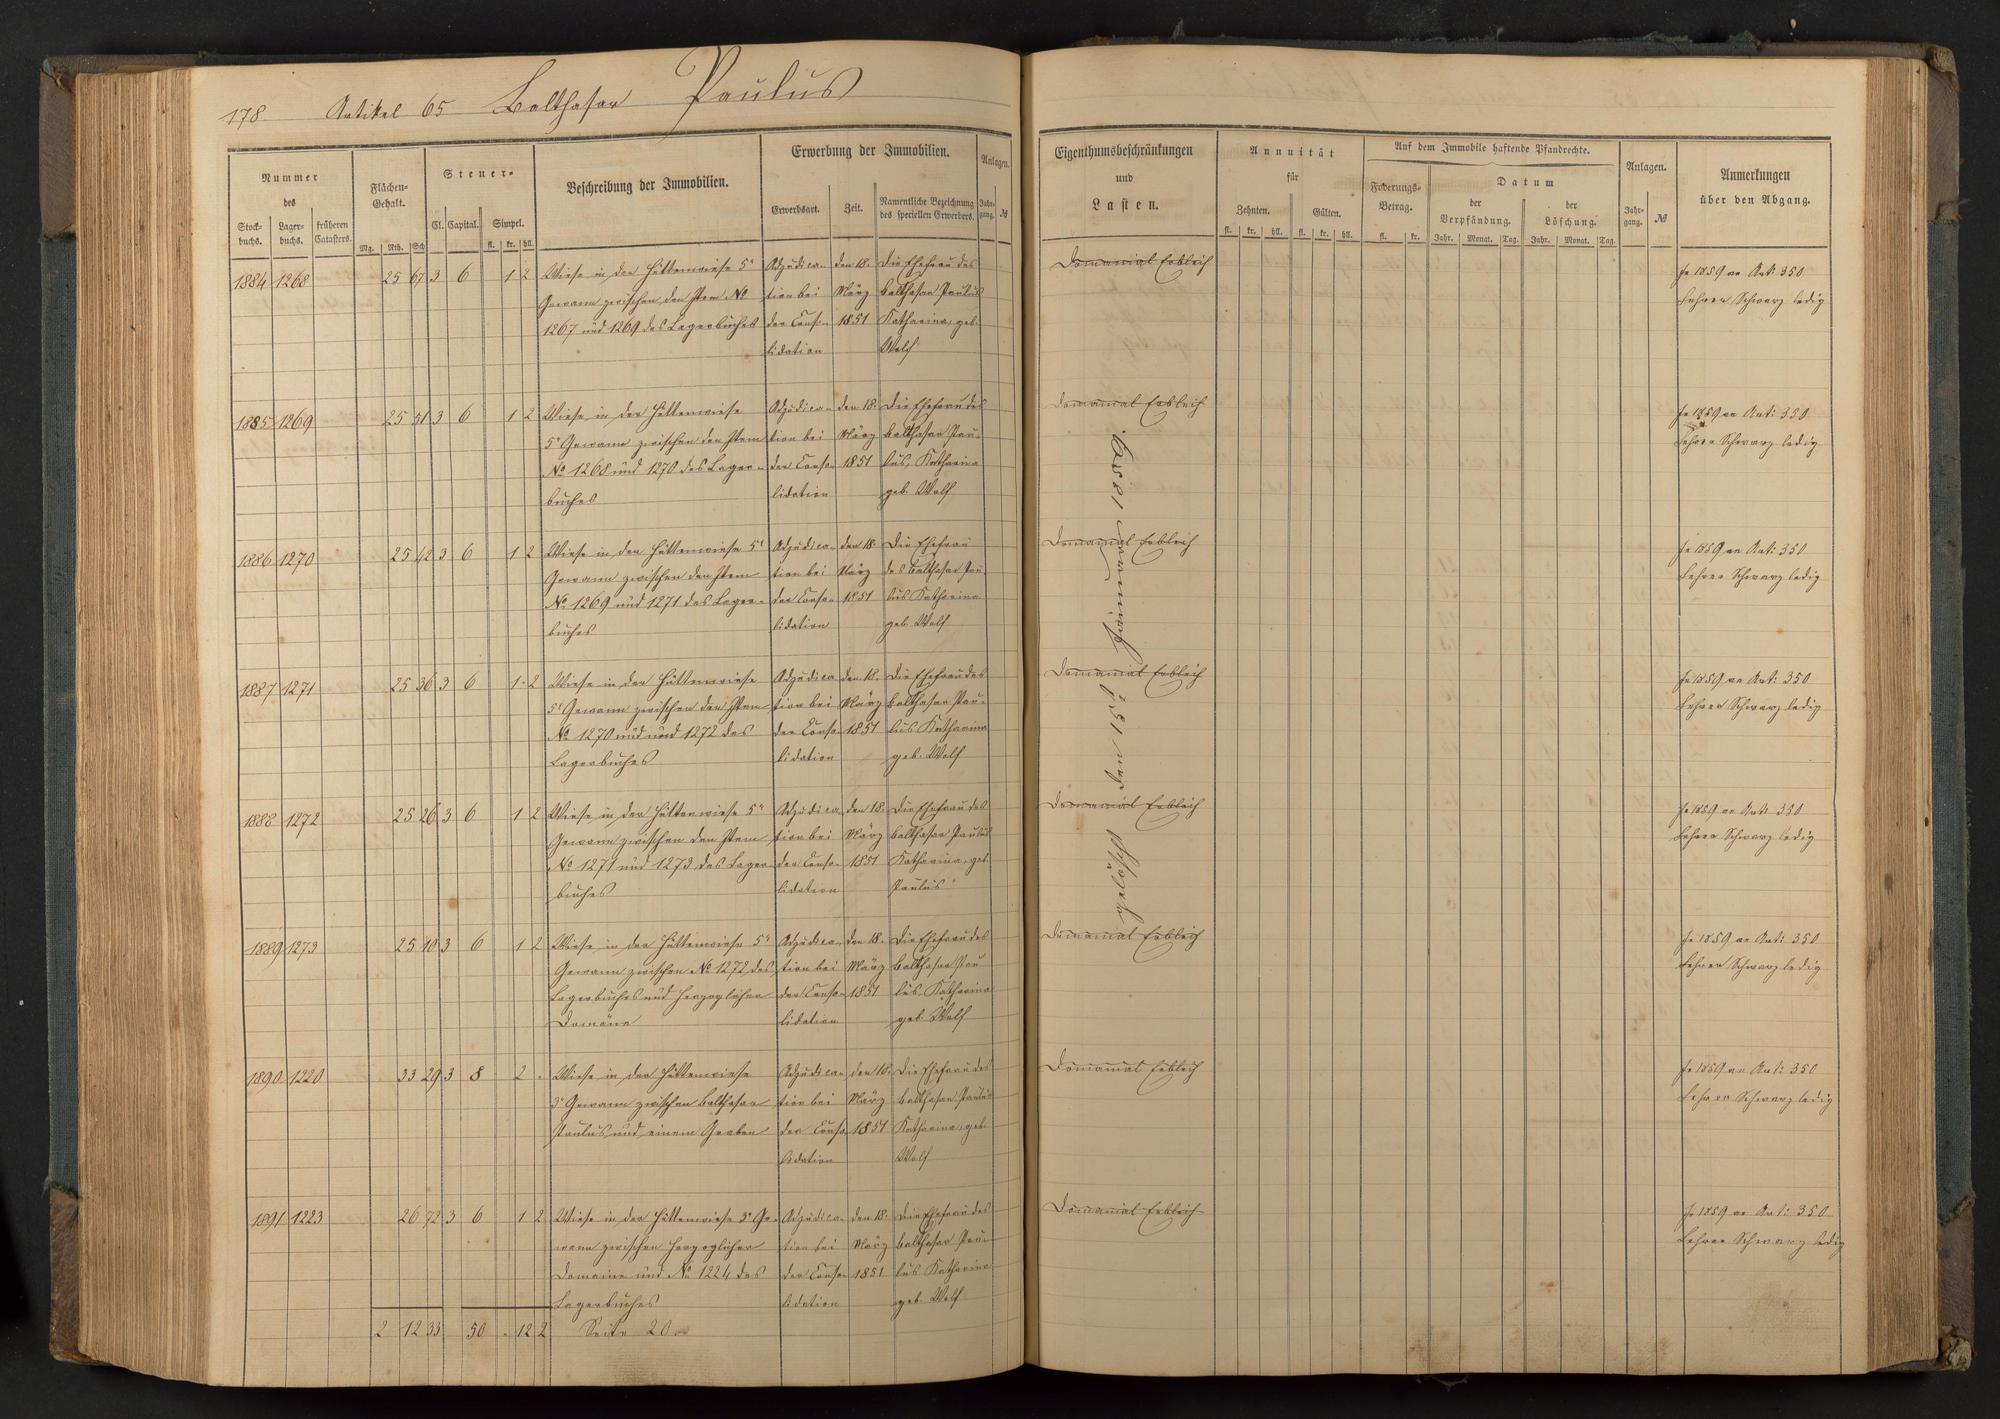 178 Artikel 65 Balthasar Paulus
Nummer des
Stock- buchs. Lager- buchs. früheren Catasters.
Flächen- Gehalt.
Mg. Rth. Sch.
Steuer-
Cl. Capital. Simpel.
fl. kr. hll.
Beschreibung der Immobilien.
Erwerbung der Immobilien.
Erwerbsart. Zeit. Namentliche Bezeichnung des speciellen Erwerbers.
Anlagen.
Jahr- gang. №
Eigenthumsbeschränkungen
und
Lasten.
Annuität
für
Zehnten. Gülten.
fl. kr. hll. fl. kr. hll.
Auf dem Immobile haftende Pfandrechte.
Foderungs- Betrag.
fl. kr.
Datum
der Verpfändung. der Löschung.
Jahr. Monat. Tag. Jahr. Monat. Tag.
Anlagen.
Jahr- gang. №
Anmerkungen
über den Abgang.
1884 1268 25 67 3 6 1 2 Wiese in der Hüttenwiese 5r Adjudica- den 18. Die Ehefrau des Domanial Erbleih pr 1859 an Art: 350
Gewann zwischen den Item No tion bei März Balthasar Paulus Lehrer Schwarz ledig
1267 und 1269 des Lagerbuches der Conso- 1851 Katharina, geb.
lidation Wolf
1885 1269 25 51 3 6 1 2 Wiese in der Hüttenwiese Adjudica- den 18. Die Ehefrau des Domanial Erbleih pr 1859 an Art: 350
5r Gewann zwischen den Item tion bei März Balthasar Pau- Lehrer Schwarz ledig
No 1268 und 1270 des Lager- der Conso- 1851 lus, Katharina
buches lidation geb. Wolf
1886 1270 25 42 3 6 1 2 Wiese in der Hüttenwiese 5r Adjudica- den 18. Die Ehefrau Domanial Erbleih pr 1859 an Art: 350
Gewann zwischen den Item tion bei März des Balthasar Pau- Lehrer Schwarz ledig
No 1269 und 1271 des Lager- der Conso- 1851 lus Katharina
buches lidation geb. Wolf
1887 1271 25 36 3 6 1 2 Wiese in der Hüttenwiese Adjudica- den 18. Die Ehefrau des Domanial Erbleih pr 1859 an Art: 350
5r Gewann zwischen den Item tion bei März Balthasar Pau- Lehrer Schwarz ledig
No 1270 und und 1272 des der Conso- 1851 lus Katharina
Lagerbuches lidation geb. Wolf
1888 1272 25 26 3 6 1 2 Wiese in der Hüttenwiese 5r Adjudica- den 18. Die Ehefrau des Domanial Erbleih pr 1859 an Art: 350
Gewann zwischen den Item tion bei März Balthasar Paulus Lehrer Schwarz ledig
No 1271 und 1273 des Lager- der Conso- 1851 Katharina, geb.
buches lidation Paulus
1889 1273 25 10 3 6 1 2 Wiese in der Hüttenwiese 5r Adjudica- den 18. Die Ehefrau des Domanial Erbleih pr 1859 an Art: 350
Gewann zwischen No 1272 des tion bei März Balthasar Pau- Lehrer Schwarz ledig
Lagerbuches und Herzoglicher der Conso- 1851 lus Katharina
Domäne lidation geb. Wolf
1890 1220 33 29 3 8 2 . Wiese in der Hüttenwiese Adjudica- den 18. Die Ehefrau des Domanial Erbleih pr 1859 an Art: 350
3r Gewann zwischen Balthasar tion bei März Balthasar Paulus Lehrer Schwarz ledig
Paulus und einem Graben der Conso- 1851 Katharina, geb.
lidation Wolf
1891 1223 26 72 3 6 1 2 Wiese in der Hüttenwiese 3r Ge- Adjudica- den 18. Die Ehefrau des Domanial Erbleih pr 1859 an Art: 350
wann zwischen Herzoglicher tion bei März Balthasar Pau- Lehrer Schwarz ledig
Domaine und No 1224 des der Conso- 1851 lus Katharina
Lagerbuches lidation geb. Wolf
2 12 33 50 . 12 2 Seite 20.
gelöscht den 15t